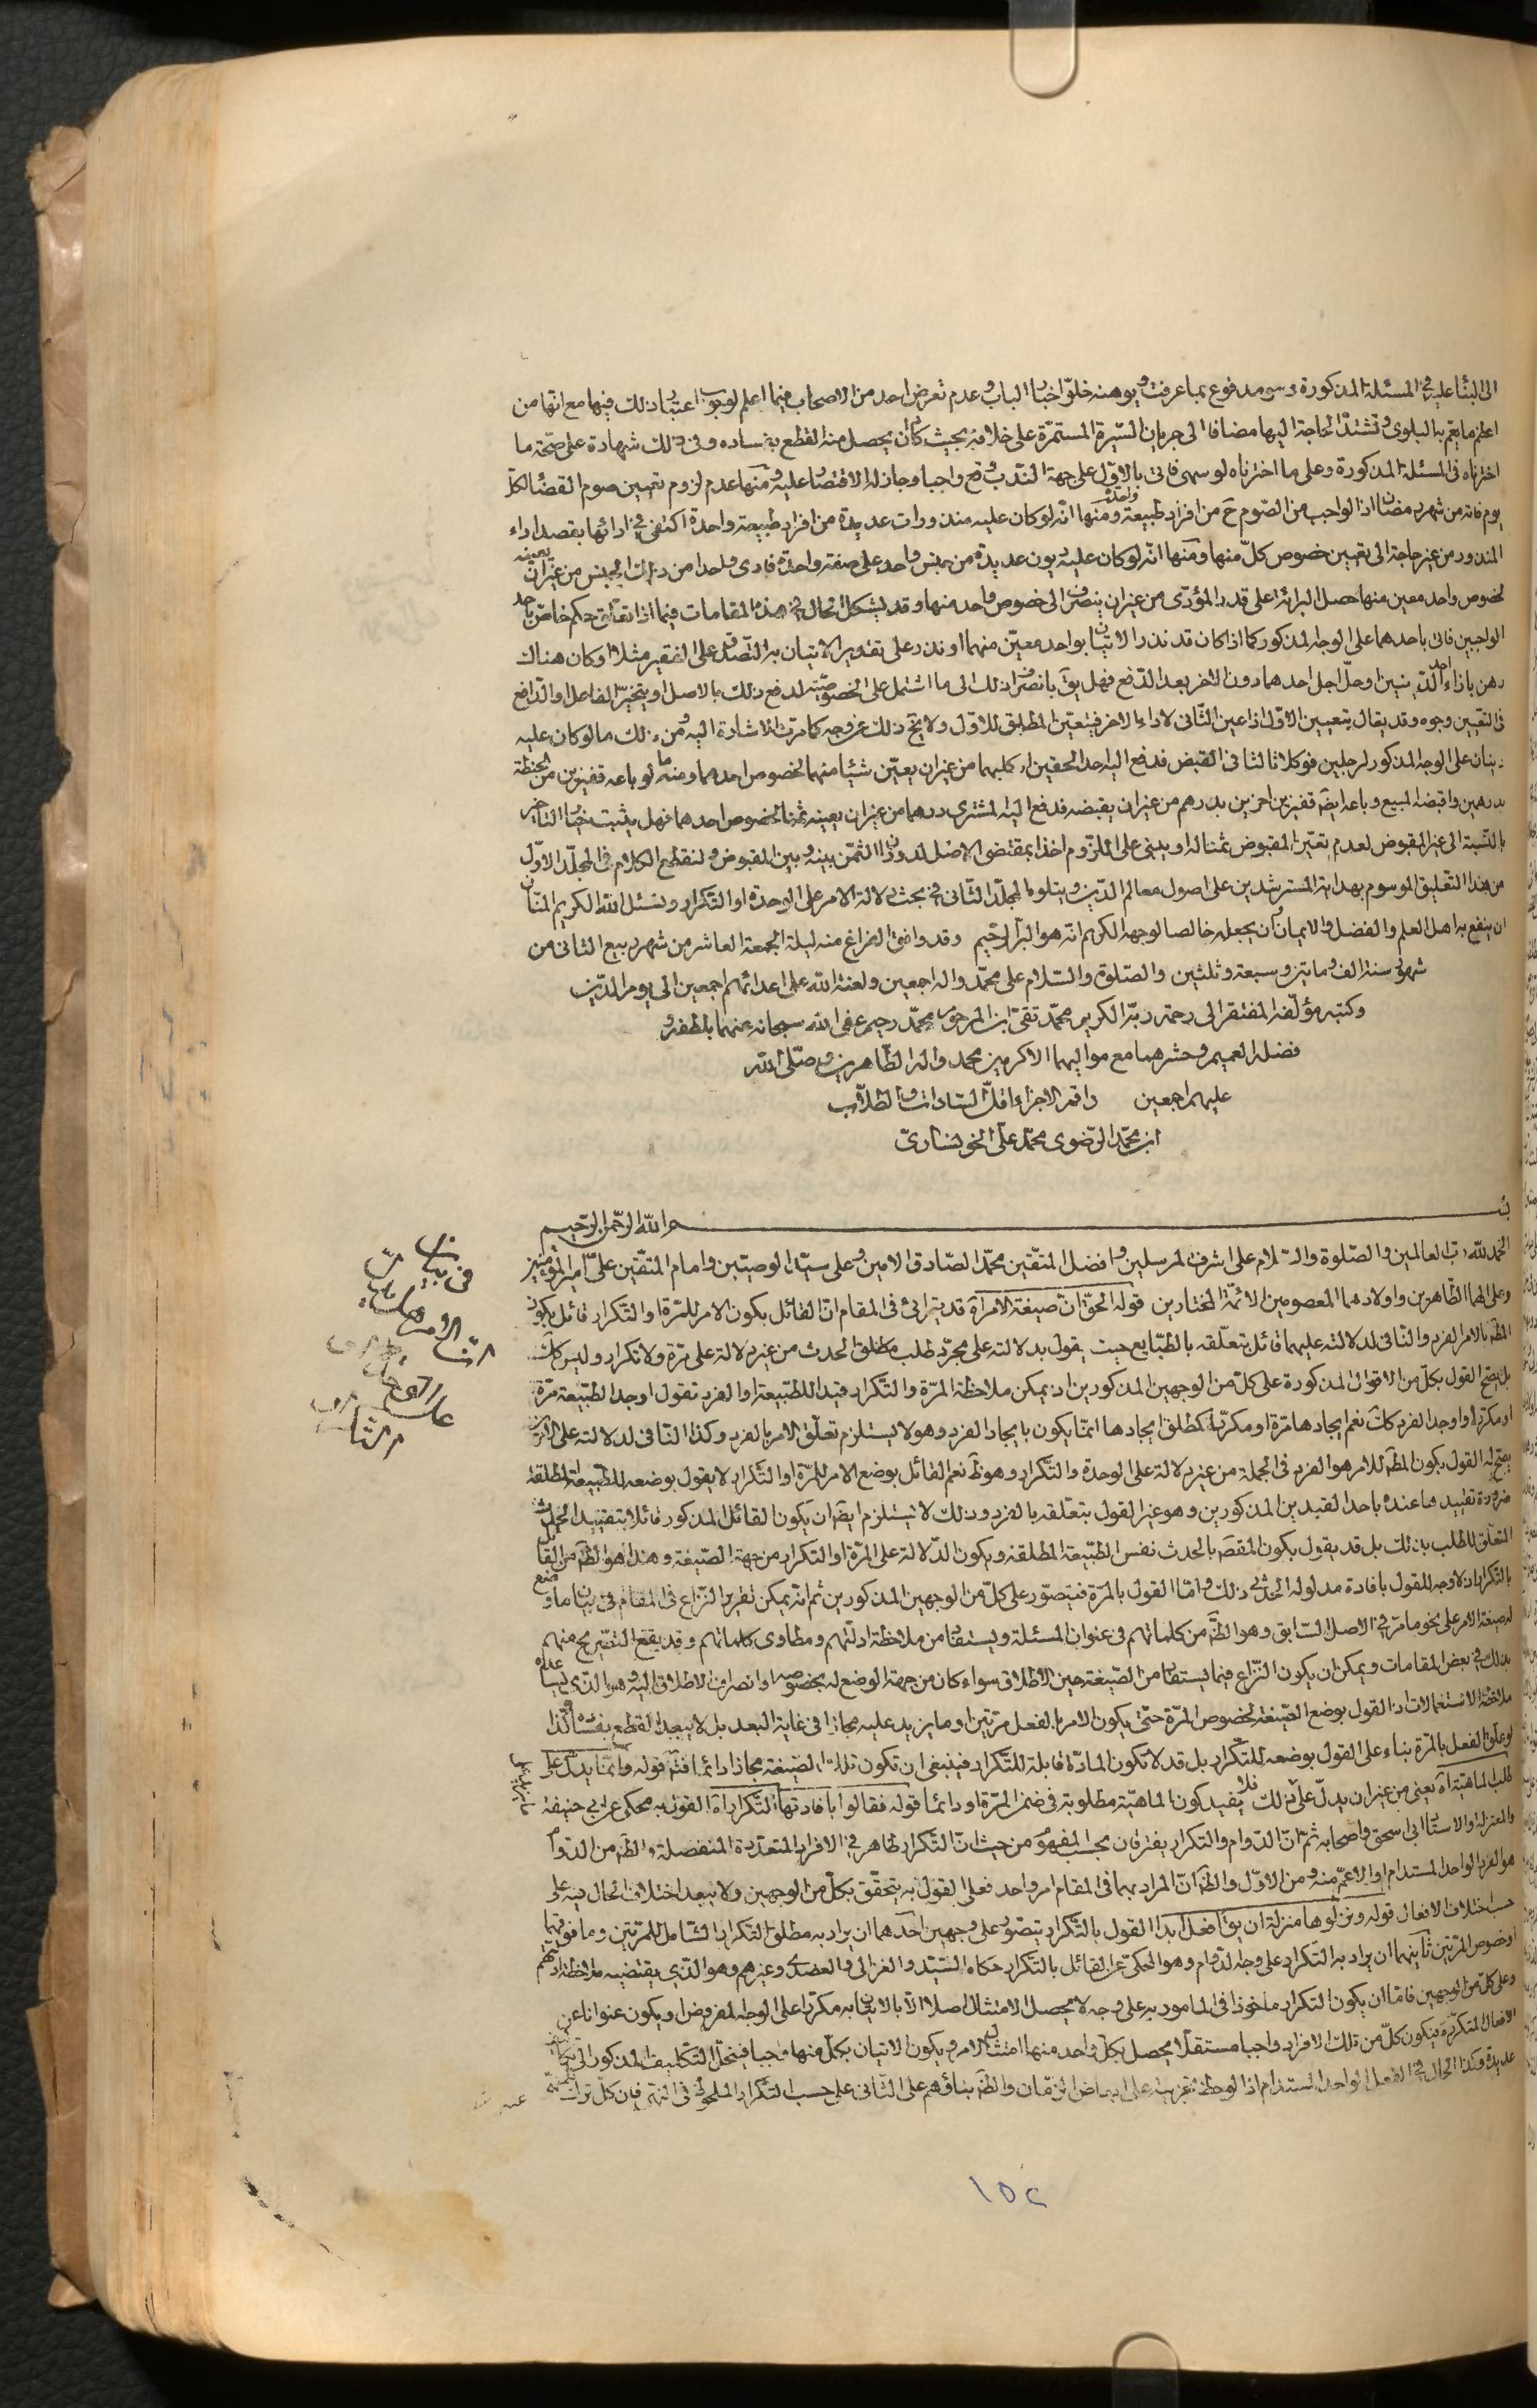 الى البناء عليه في المسئلة المذكورة مدفوع بما عرفت ويوهنه خلو اخبار الباب وعدم تعرض احد من الاصحاب فيما اعلم لوجوب اعتبار ذلك فيها مع انها من
اعظم ما يعم به البلوى وتشتد الحاجة اليها مضافا الى جريان السيرة المستمرة على خلافه بحيث كاد ان يحصل منه القطع بفساده وفى ذلك شهادة على صحة ما
اخترناه فى المسئلة المذكورة وعلى ما اخترناه لو سهى فاتى بالاول على جهة الندب وقع واجبا وجاز له الاقتصار عليه ومنها عدم لزوم تعيين صوم القضاء لكل
يوم فاته من شهر رمضان اذ الواجب من الصوم ح من افراد طبيعة واحدة ومنها انه لو كان عليه منذورات عديدة من افراد طبيعة واحدة اكتفى في ادائها بقصد اداء
المنذور من غير حاجة الى تعيين خصوص كل منها ومنها انه لو كان عليه ديون عديدة من جنس واحد على صفة واحدة فادى واحدا من ذلك الجنس من غير ان يعينه
لخصوص واحد معين منها حصل البرائة على قدر المؤدى من غير ان ينصرف الى خصوص واحد منها وقد يشكل الحال في هذه المقامات فيما اذا تعلق حكم خاص باحد
الواجبين فاتى باحدهما على الوجه المذكور كما اذا كان قد نذر الاتيان بواحد معين منهما او نذر على تقدير الاتيان به التصدق على الفقير مثلا او كان هناك
رهن بازاء احد الدينين او حل اجل احدهما دون الاخر بعد الدفع فهل يق بانصراف ذلك الى ما اشتمل على الخصوصية لدفع ذلك بالاصل او يتخير الفاعل او الدافع
فى التعيين وجوه وقد يقال بتعيين الاول اذا عين الثانى لاداء الاخر فيتعين المطلق للاول ولا يخ ذلك عن وجه كما مرت الاشارة اليه ومن ذلك ما لو كان عليه
دينان على الوجه المذكور لرجلين فوكلا ثالثا فى القبض فدفع اليه احد الحقين او كليهما من غير ان يعين شيئا منهما لخصوص احدهما ومنه ما لو باعه قفيزين من الحنطة
بدرهمين واقبضه المبيع وباعه ايضا قفيزين اخرين بدرهم من غير ان يقبضه فدفع اليه المشترى درهما من غير ان يعينه ثمنا لخصوص احدهما فهل يثبت خيار التاخير
بالنسبة الى غير المقبوض لعدم تعين المقبوض ثمنا له او يبنى على اللزوم اخذا بمقتضى الاصل لدوران الثمن بينه وبين المقبوض ولنقطع الكلام فى المجلد الاول
من هذا التعليق الموسوم بهداية المسترشدين على اصول معالم الدين ويتلوه المجلد الثانى في بحث دلالة الامر على الوحدة او التكرار ونسئل الله الكريم المنان
ان ينفع به اهل العلم والفضل والايمان وان يجعله خالصا لوجهه الكريم انه هو البر الرحيم وقد وافق الفراغ منه ليلة الجمعة العاشر من شهر ربيع الثانى من
شهور سنة الف ومايتين وسبعة وثلثين والصلوة والسلام على محمد واله اجمعين ولعنة الله على اعدائهم اجمعين الى يوم الدين
وكتبه مؤلفه المفتقر الى رحمة ربه الكريم محمد تقى ابن المرحوم محمد رحيم عفى الله سبحانه عنهما بلطفه و
فضله العميم وحشرهما مع مواليهما الاكرمين محمد واله الطاهرين وصلى الله
عليهم اجمعين راقم الاجزاء اقل السادات والطلاب
ابن محمد الرضوى محمد على الخونسارى
بسم الله الرحمن الرحيم
الحمد لله رب العالمين والصلوة والسلام على اشرف المرسلين وافضل المتقين محمد الصادق الامين وعلى سيد الوصيين وامام المتقين على امير المؤمنين
وعلى الهما الطاهرين واولادهما المعصومين الائمة المختارين قوله الحق ان صيغة الامر آه قد يترائى فى المقام ان القائل بكون الامر للمرة او التكرار قائل بكون
المط بالامر الفرد والنافى لدلالته عليهما قائل بتعلقه بالطبايع حيث يقول بدلالته على مجرد طلب مطلق الحدث من غير دلالة على مرة ولا تكرار وليس كك
بل يصح القول بكل من الاقوال المذكورة على كل من الوجهين المذكورين اذ يمكن ملاحظة المرة والتكرار قيدا للطبيعة او الفرد تقول اوجد الطبيعة مرة
او مكررا او اوجد الفرد كك نعم ايجادها مرة او مكررا كمطلق ايجادها انما يكون بايجاد الفرد وهو لا يستلزم تعلق الامر بالفرد وكذا النافى لدلالته على الامرين
يصح له القول بكون المط للامر هو الفرد فى الجملة من غير دلالة على الوحدة والتكرار وهو ظ نعم القائل بوضع الامر للمرة او التكرار لا يقول بوضعه للطبيعة المطلقة
ضرورة تقييدها عنده باحد القيدين المذكورين وهو غير القول بتعلقه بالفرد وذلك لا يستلزم ايضا ان يكون القائل المذكور قائلا بتقييد الحدث
المتعلق للطلب بذلك بل قد يقول بكون المقص بالحدث نفس الطبيعة المطلقة ويكون الدلالة على المرة او التكرار من جهة الصيغة وهذا هو الظ من القائل
بالتكرار اذ لا وجه للقول بافادة مدلوله الحدثى ذلك واما القول بالمرة فيتصور على كل من الوجهين المذكورين ثم انه يمكن تقرير النزاع فى المقام فى بيان ما وضع
له صيغة الامر على نحو ما مر في الاصل السابق وهو الظ من كلماتهم فى عنوان المسئلة ويستفاد من ملاحظة ادلتهم ومطاوى كلماتهم وقد يقع التصريح منهم
بذلك في بعض المقامات ويمكن ان يكون النزاع فيما يستفاد من الصيغة حين الاطلاق سواء كان من جهة الوضع له بخصوصه او انصراف الاطلاق اليه وهو الذى يساعده
ملاحظة الاستعمالات اذ القول بوضع الصيغة لخصوص المرة حتى يكون الامر بالفعل مرتين او ما يزيد عليه مجازا فى غاية البعد بل لا يبعد القطع بفساده وكذا
لو علق الفعل بالمرة بناء على القول بوضعه للتكرار بل قد لا تكون المادة قابلة للتكرار فينبغى ان تكون تلك الصيغة مجازا دائما فتم قوله وانما يدل على
طلب الماهية آه يعنى من غير ان يدل على ذلك فلا يفيد كون الماهية مطلوبة فى ضمن المرة او دائما قوله فقالوا بافادتها التكرار آه القول به محكى عن ابى حنيفة
والمعتزلة والاستاد ابى اسحق واصحابه ثم ان الدوام والتكرار يفترقان بحسب المفهوم من حيث ان التكرار ظاهر في الافراد المتعددة المنفصلة والظ من الدوام
هو الفرد الواحد المستدام او الاعم منه ومن الاول والظ ان المراد بهما فى المقام امر واحد فعلى القول به يتحقق بكل من الوجهين ولا يبعد اختلاف الحال فيه على
حسب اختلاف الافعال قوله ونزلوها منزلة ان يق افعل ابدا القول بالتكرار يتصور على وجهين احدهما ان يراد به مطلق التكرار الشامل للمرتين وما فوقهما
او خصوص المرتين ثانيهما ان يراد به التكرار على وجه الدوام وهو المحكى عن القائل بالتكرار حكاه السيد والغزالى والعضدى وغيرهم وهو الذى يقتضيه ملاحظة ادلتهم
وعلى كل من الوجهين فاما ان يكون التكرار ماخوذا فى المامور به على وجه لا يحصل الامتثال اصلا الا بالاتيان به مكررا على الوجه المفروض او يكون عنوانا عن
الافعال المتكررة فيكون كل من تلك الافراد واجبا مستقلا يحصل بكل واحد منها امتثال الامر ويكون الاتيان بكل منها واجبا فينحل التكليف المذكور الى تكاليف
عديدة وكذا الحال في الفعل الواحد المستدام اذا لوحظ تجزيته على ابعاض الزمان والظ بناؤهم على الثانى على حسب التكرار الملحوظ فى النهى فان كل ترك
١٥٢